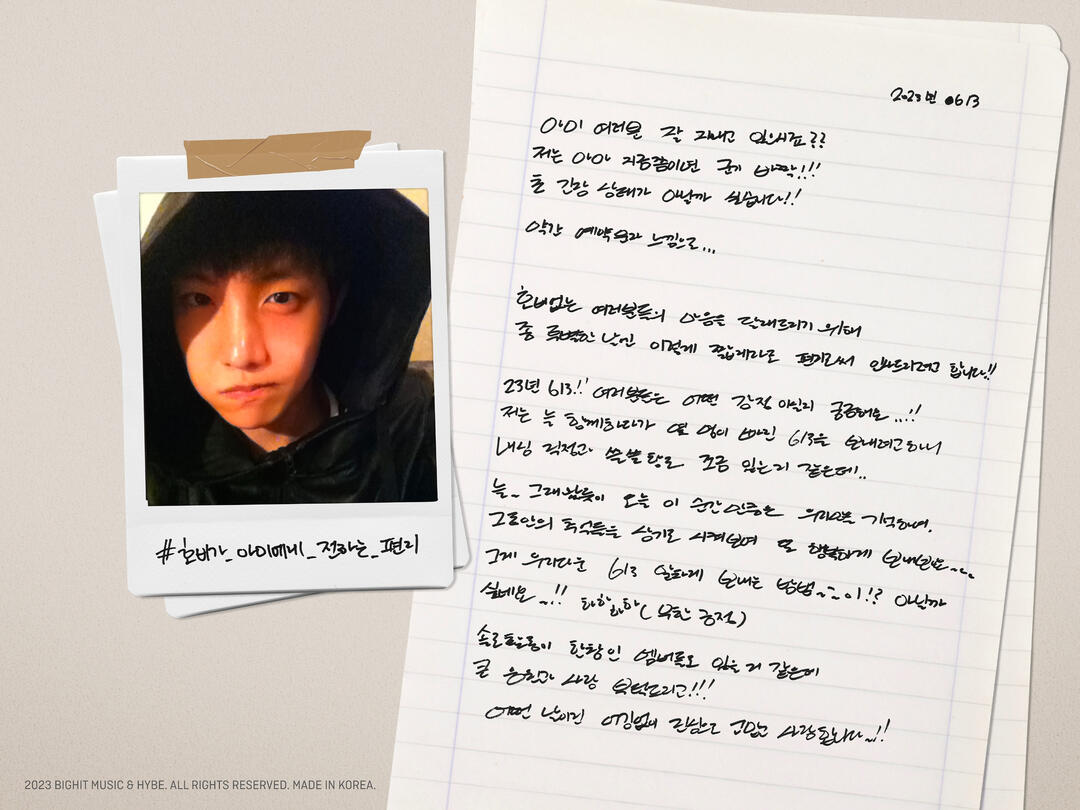 2023년 0613
아미 여러분 잘 지내고 있으시죠??
저는 아마 지금쯤이면 군기 바짝!!!
초 긴장 상태가 아닐까 싶습니다!!
약간 예약문자 느낌으로...
호비없는 여러분들의 마음을 달래드리기 위해
좀 특별한 날인 이렇게 짧게나마 편지로써 인사드리려고 합니다!!
23년 613!! 여러분들은 어떤 감정 이실지 궁금해요..!!
저는 늘 함께하다가 몇 명이 빠진 613을 보내려고하니
내심 걱정과 쓸쓸함도 조금 있는거 같은데..
늘~ 그래왔듯이 오늘 이 순간만큼은 우리만을 기억하며,
그동안의 추억들을 상기도 시켜보며 또 행복하게 보내보는~~
그게 우리다운 613 알차게 보내는 방법~~이!? 아닐까
싶네요~!! 하핳핳하( 무한 긍정)
솔로활동이 한창인 멤버들도 있을 거 같은데
큰 응원과 사랑 부탁드리고!!!
어떤 날이던 어김없이 감사하고 고맙고 사랑합니다~!!
#호비가_아미에게_전하는_편지
2023 BIGHIT MUSIC & HYBE. ALL RIGHTS RESERVED. MADE IN KOREA.